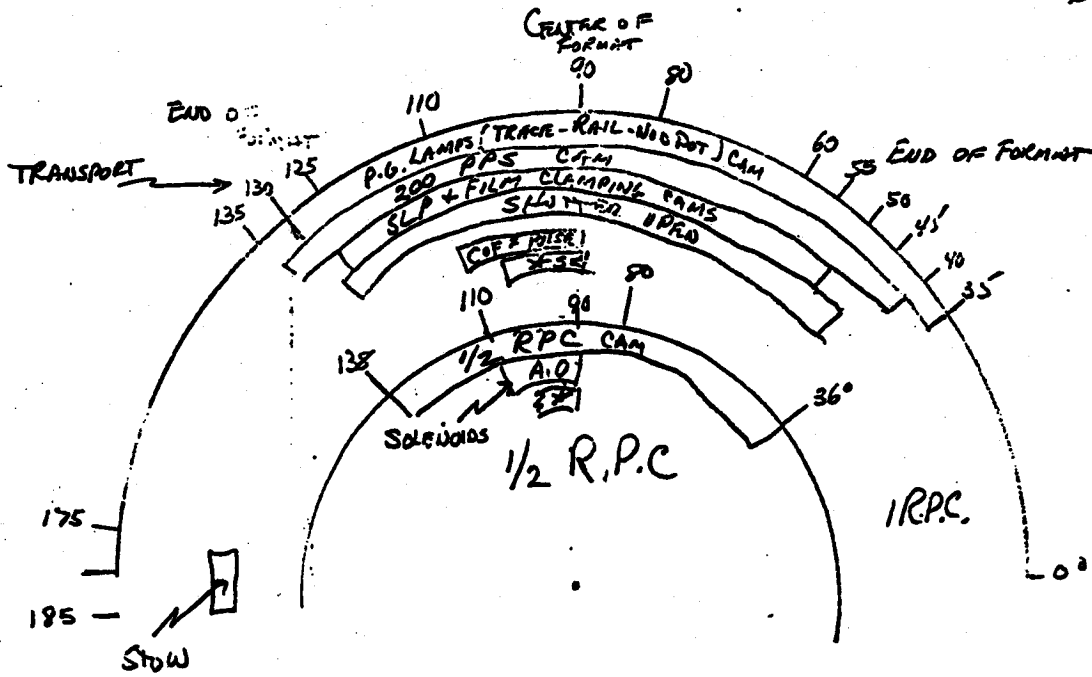 CENTER OF
FORMAT
90
80
110
END OF
FORMAT
125
TRANSPORT
130
135
P.G. LAMPS (TRACE-RAIL-NOD DOT) CAM
200 PPS CAM
SLP + FILM CLAMPING CAMS
SHUTTER OPEN
COF = PULSE
60
55 END OF FORMAT
50
45
40
35
110
90
80
138
1/2 RPC CAM
A.O
36°
SOLENOIDS
1/2 R.P.C
1 R.P.C.
175
0°
185
STOW